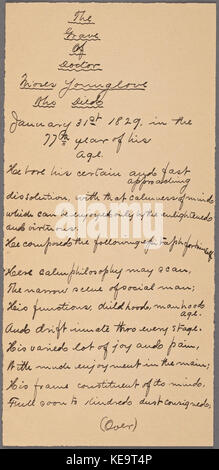 The
Grave
Of
Doctor
Moses Younglove
Who Died
January 31st 1829, in the
77th year of his
Age.
He bore his certain and fast
approaching
dissolution, with that calmness of mind
which can be enjoyed only by the enlightened
and virtuous.
He composed the following epitaph for himself
Here calm philosophy may scan,
The narrow scene of social man;
His functions, childhood, manhood
age.
And drift innate thro every stage.
His varied lot of joy and pain,
With much enjoyment in the main;
His frame constituent of its mind,
Full soon to kindred dust consigned,
(Over)
alamy
Image ID: KE9T4P
www.alamy.com